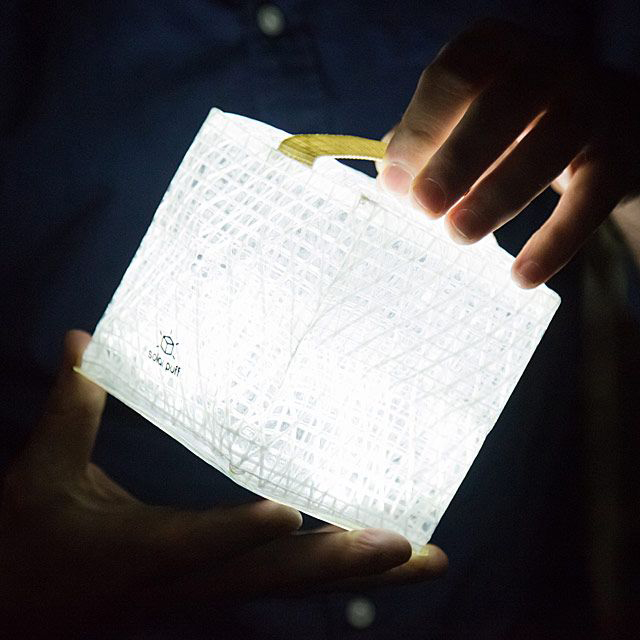 solar puff